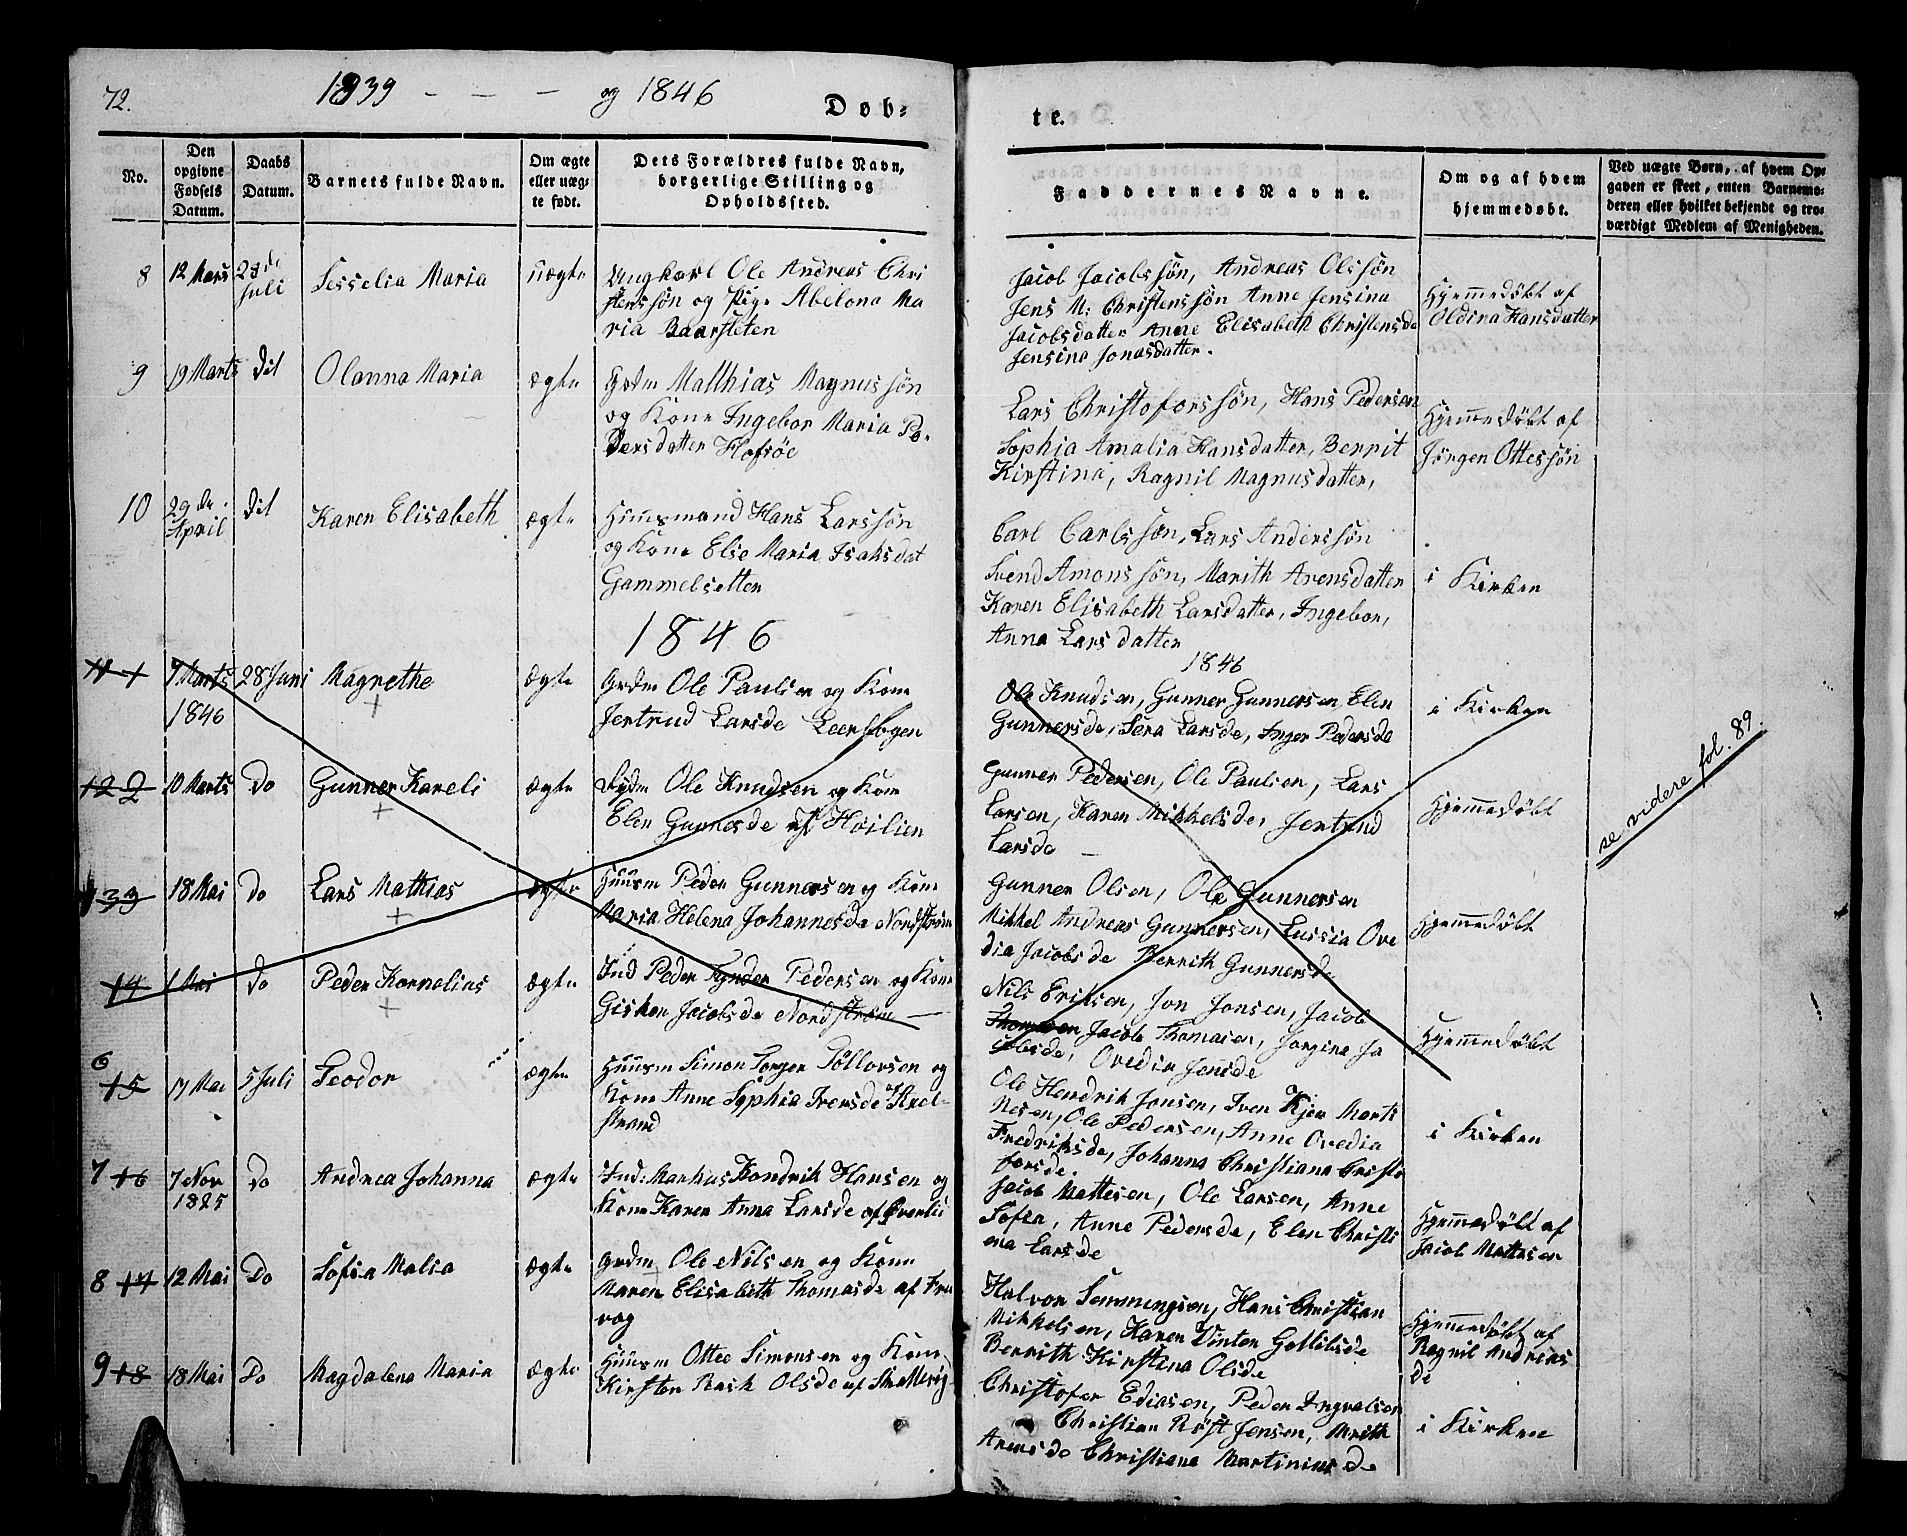 72.
1839 - - - og 1846
Døb-
te.
No.
Den opgivne Fødsels Datum.
Daabs Datum.
Barnets fulde Navn.
Om ægte eller uægte født.
Dets Forældres fulde Navn, borgerlige Stilling og Opholdssted.
Faddernes Navne.
Om og af hvem hjemmedøbt.
Ved uægte Børn, af hvem Opgaven er skeet, enten Barnemoderen eller hvilket bekjendt og troværdigt Medlem af Menigheden.
8 12 Mars 28de Juli Sesselia Maria uægte
Ungkarl Ole Andreas Chri
stenssøn og Pige Abelona Ma
ria Baarsleten
Jacob Jacobssøn, Andreas Olssøn
Jens M: Christenssøn Anne Jensina
Jacobsdatter Anne Elisabeth Christensda
Jensina Jonasdatter.
Hjemmedøbt af
Oldina Hansdatter
9 19 Marts dit Olanna Maria ægte
Grdm Matthias Magnussøn
og Kone Ingebor Maria Pe-
dersdatter Hofsöe
Lars Christoforssøn, Hans Pedersen
Sophia Amalia Hansdatter, Berrit
Kirstina, Ragnil Magnusdatter,
Hjemmedøbt af
Jørgen Ottessøn
10 29de April dit Karen Elisabeth ægte
Huusmand Hans Larssøn
og Kone Elise Maria Isaksdat
Gammelsetter
Carl Carlssøn, Lars Anderssøn
Svend Amonssøn, Marith Arensdatter
Karen Elisabeth Larsdatter, Ingebor,
Anna Larsdatter
i Kirken
1846
1846
11 1 7 Marts 1846 28 Juni Magrethe ægte
Grdm Ole Paulsen og Kone
Jertrud Larsde Leerstogen
Ole Knudsen, Gunner Gunnersen Elen
Gunnersde, Sera Larsde, Inger Pedersde
i Kirken
12 2 10 Marts Do Gunner Kareli ægte
Ole Knudsen og Kone
Elen Gunnersde af Høilien
Gunner Pedersen, Ole Paulsen, Lars
Larsen, Karen Mikkelsde, Jertrud
Larsde
Hjemmedøbt
13 3 18 Mai Do Lars Mathias ægte
Huusm Peder Gunnersen og Kone
Maria Helena Johannesde Nordstrøm
Gunner Olsen, Ole Gunnersen
Mikkel Andreas Gunnersen, Lussia Ove
dia Jacobsde Berrith Gunnersde
Hjemmedøbt
14 1 Mai Do Peder Kornelius ægte
Ind Peder Pedersen og Kone
Gisken Jacobsde Nordstrøm
Nils Eriksen, Jon Jonsen, Jacob
Thomasen Jacob Thomasen, Jorgina Ja
cobsde, Ovedia Jensde
Hjemmedøbt
6 15 17 Mai 5 Juli Teodor ægte
Huusm Simon Torger Töllovsen og
Kone Anne Sophia Iversde af Axel-
strand
Ole Hendrik Jonsen, Iven Kjer Marti
nesen, Ole Pedersen, Anne Ovedia
Fredriksde, Johanna Christiana Cristo
forsde.
i Kirken
7 16 7 Nov 1825 Do Andrea Johanna ægte
Ind: Markus Hendrik Hansen og
Kone Karen Anna Larsde af Sverlii
Jacob Mattesen, Ole Larsen, Anne
Sofia, Anne Pedersde, Elen Christi
ena Larsde
Hjemmedøbt af
Jacob Mattesen
8 17 12 Mai Do Sofia Malia ægte
Grdm Ole Nilsen og Kone
Maren Elisabeth Thomasde af Fre
vog
Halvor Semmingsen, Hans Christian
Mikkelsen, Karen Dinten Gotlibsde
Berrith Kirstina Olsde
Hjemmedøbt af
Ragnil Andrias
de
9 18 18 Mai Do Magdalena Maria ægte
Huusm Ottee Simonsen og Kone
Kirsten Rask Olsde af Skallvig
Christofer Ediasen, Peder Ingvalsen
Christian Röst Jensen, Mrith
Arensde Christiana Martiniusde
i Kirken
se videre fol. 89.